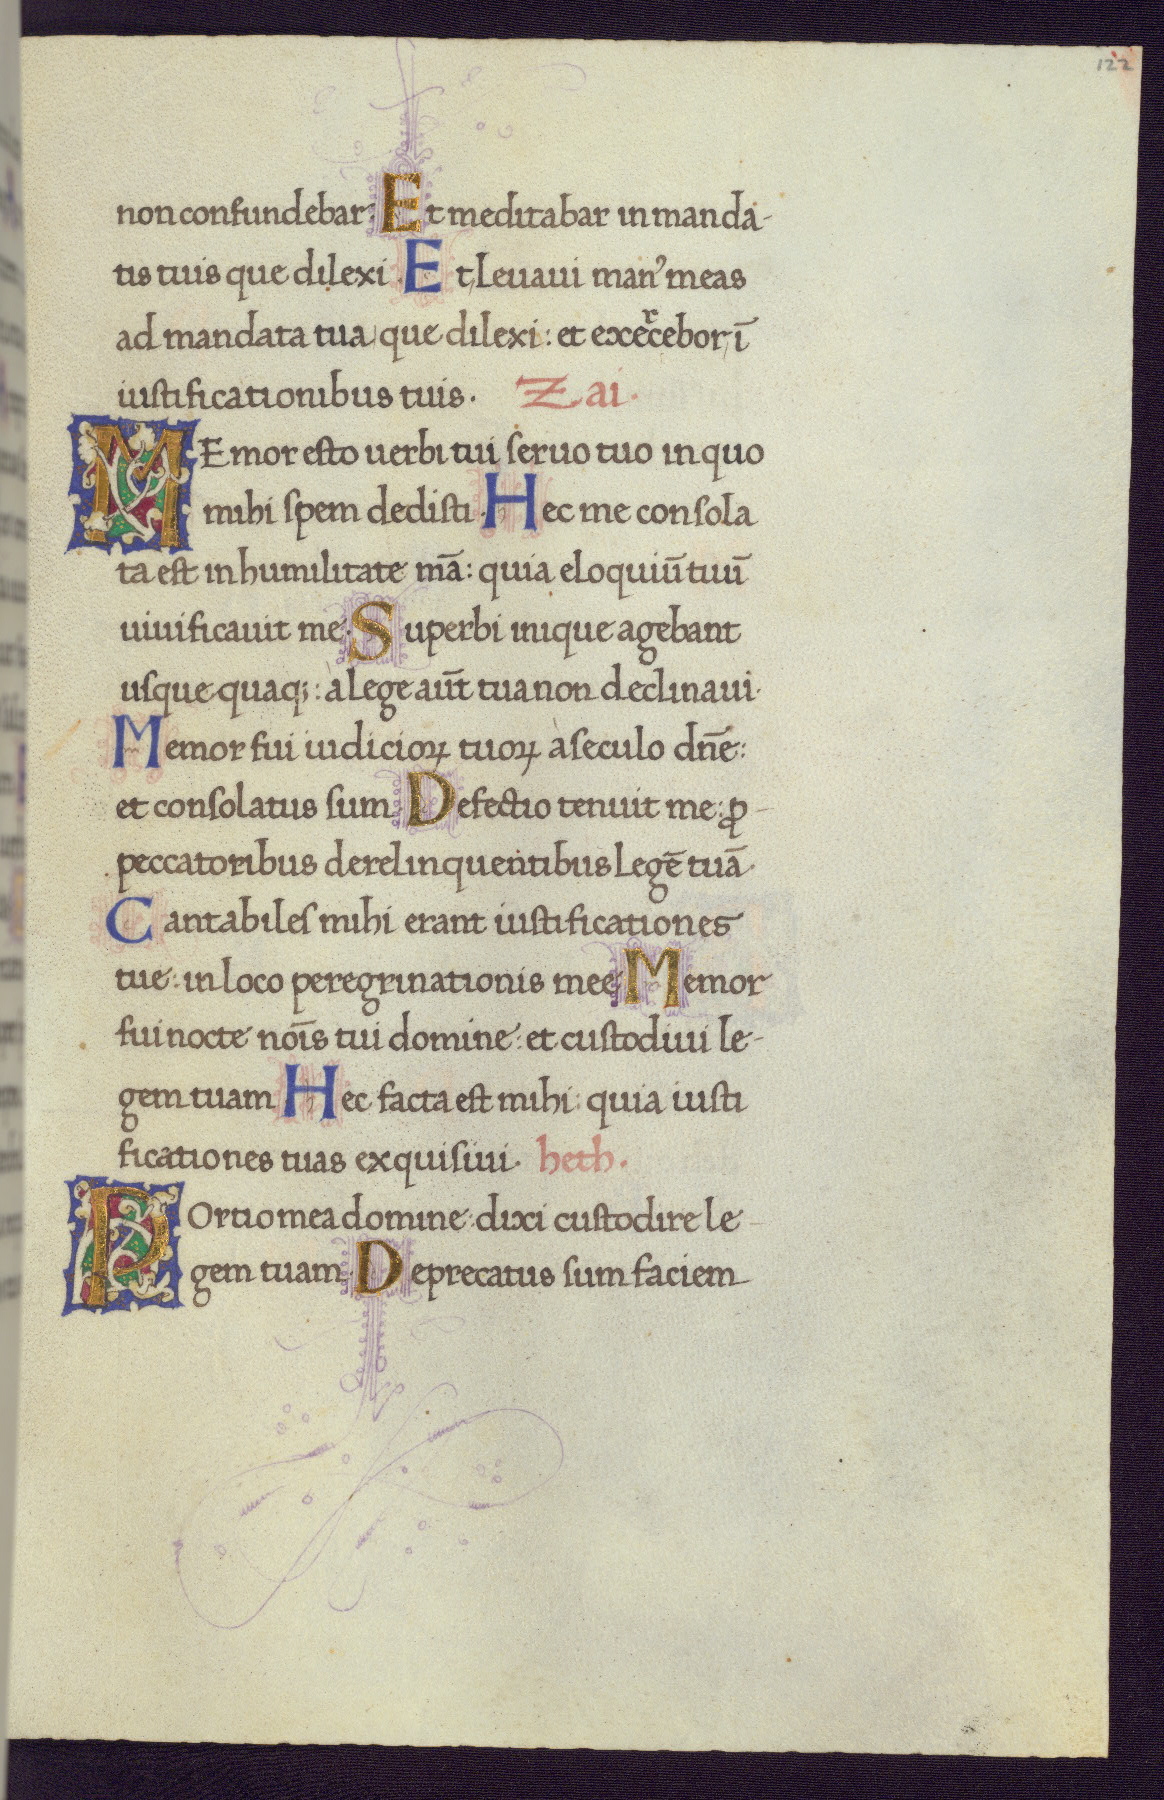 122
non confundebar: Et meditabar in manda-
tis tuis que dilexi. Et leuaui manꝰ meas
ad mandata tua que dilexi: et exercebor ī
iustificationibus tuis. Zai.
MEmor esto uerbi tui seruo tuo in quo
mihi spem dedisti. Hec me consola
ta est in humilitate mēa: quia eloquiū tuū
uiuificauit me. Superbi inique agebant
usque quaqꝫ: à lege aūt tua non declinaui.
Memor fui iudicioꝝ tuoꝝ à seculo dn̄e:
et consolatus sum. Defectio tenuit me: ꝓ-
peccatoribus derelinquentibus legē tuā.
Cantabiles mihi erant iustificationes
tue: in loco peregrinationis mee. Memor
fui nocte noīs tui domine: et custodiui le-
gem tuam. Hec facta est mihi: quia iusti
ficationes tuas exquisiui. heth.
POrtio mea domine: dixi custodire le-
gem tuam. Deprecatus sum faciem